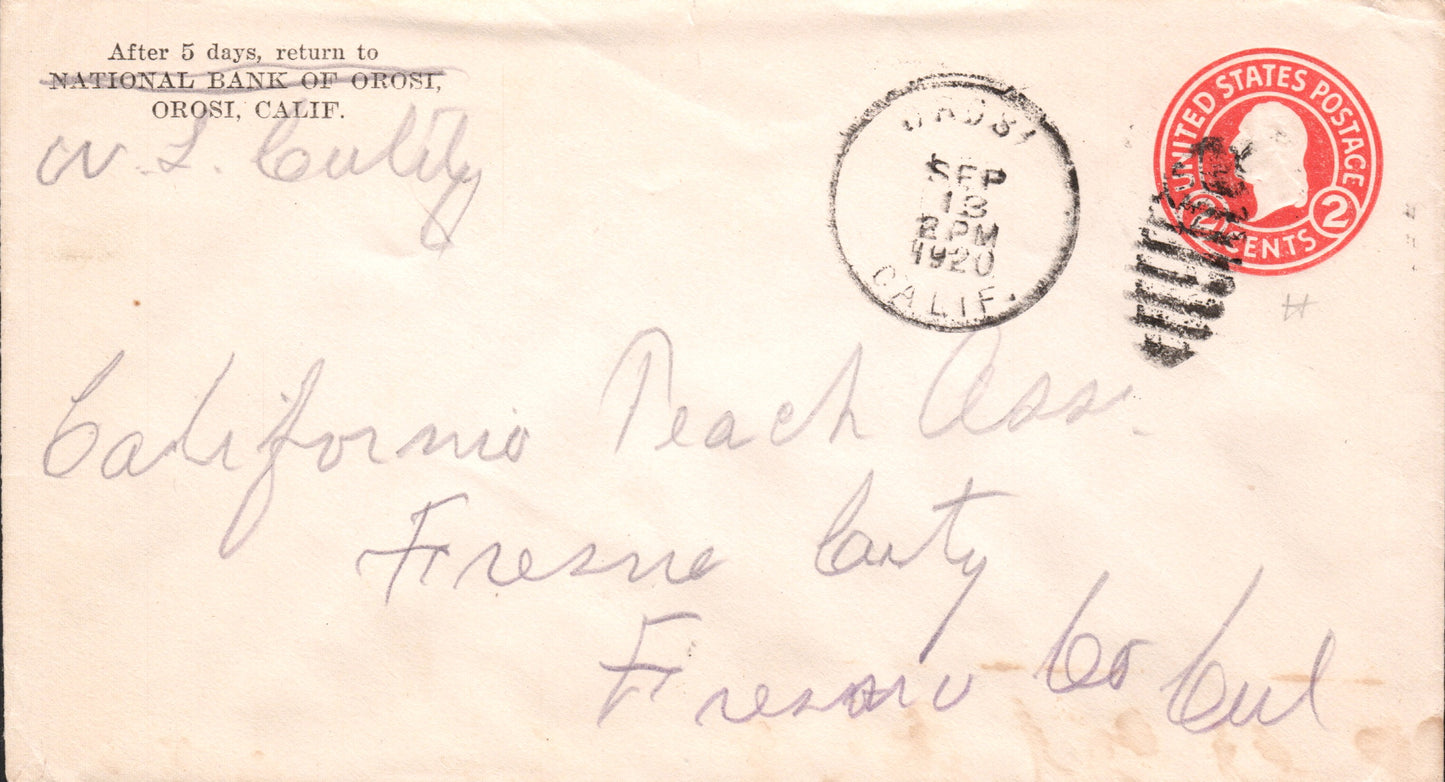 After 5 days, return to
NATIONAL BANK OF OROSI,
OROSI, CALIF.
W. L.
OROSI
SEP
13
2 PM
1920
CALIF.
UNITED STATES POSTAGE
2 CENTS 2
California Peach Ass.
Fresno
Fresno Co Cal